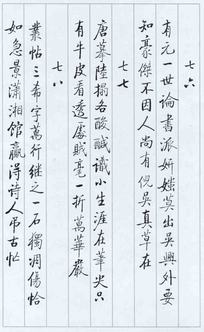 七六
有元一世論書派妍媸莫出吳興外要
知豪傑不因人尚有倪吳真草在
七七
唐摹陸搨各酸鹹識小生涯在筆尖只
有牛皮看透處賊毫一折萬華嚴
七八
叢帖三希字萬行繼之一石獨凋傷恰
如急景瀟湘館贏得詩人吊古忙